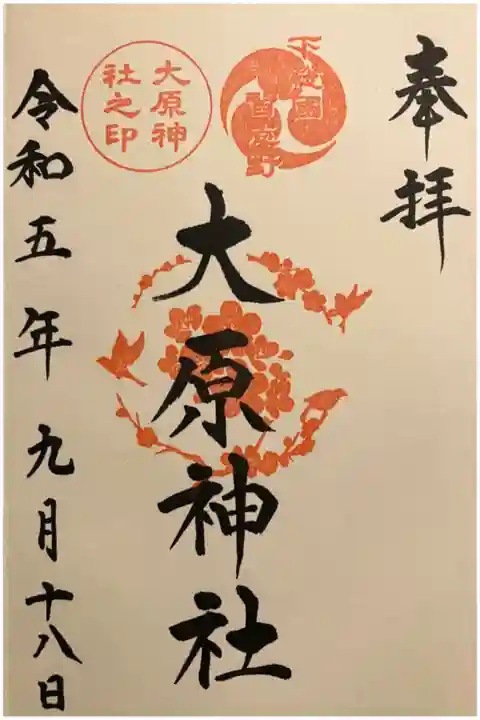 奉拝
下総國
大原神
社之印
大原神社
令和五年九月十八日